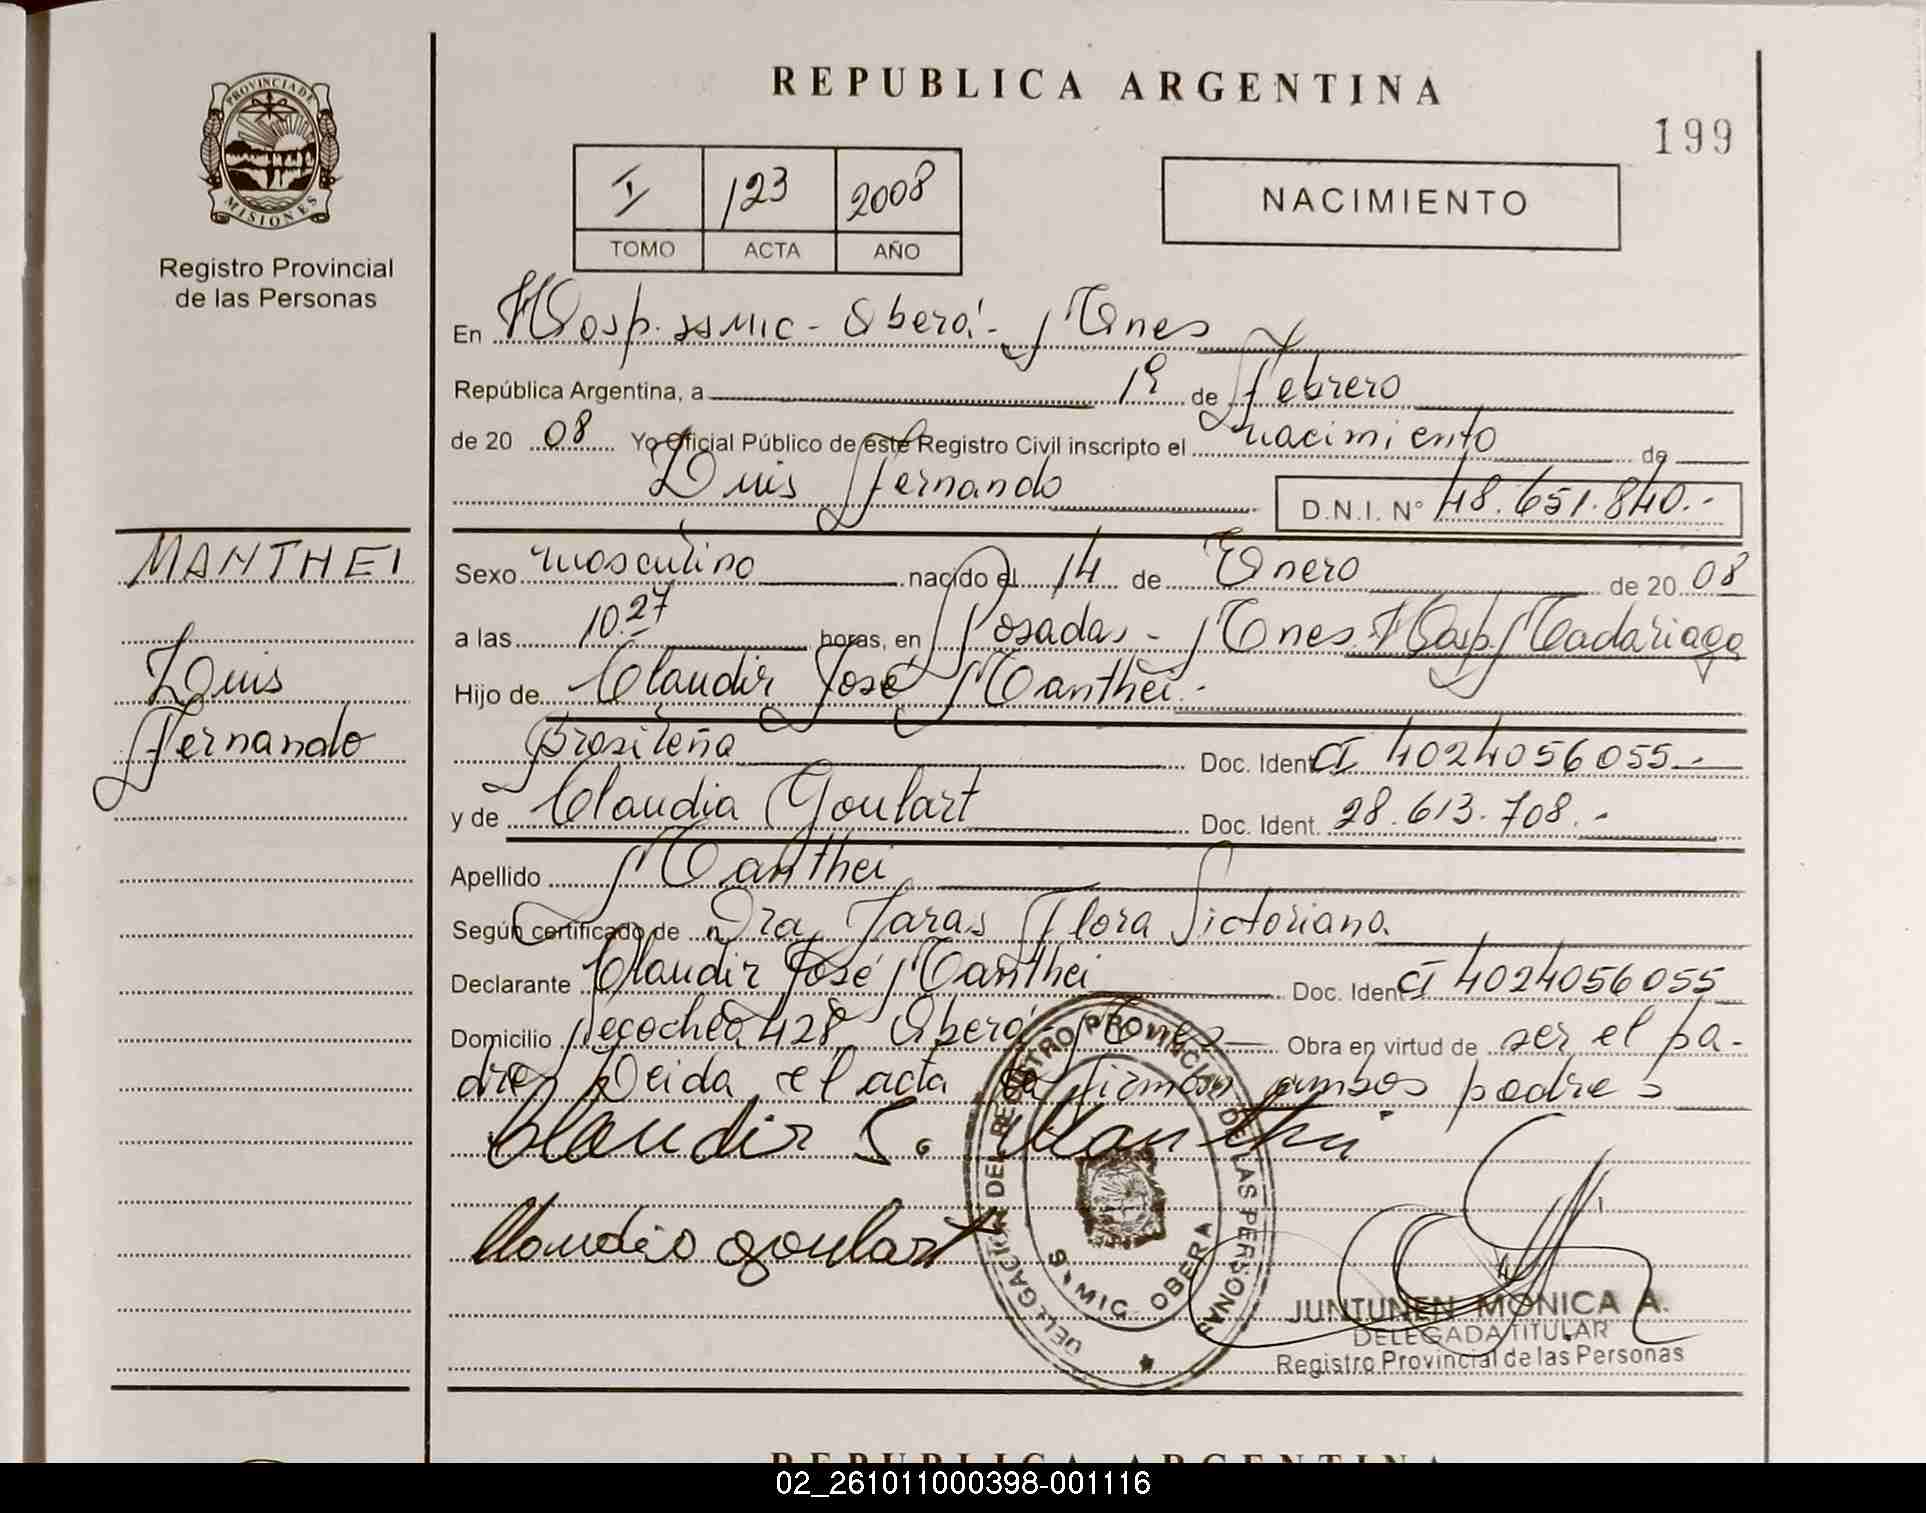 REPUBLICA ARGENTINA
199
PROVINCIA DE
MISIONES
Registro Provincial
de las Personas
I 123 2008
TOMO ACTA AÑO
NACIMIENTO
En Hosp. SAMIC - Oberá - Mnes
República Argentina, a 1º de Febrero
de 20 08 Yo Oficial Público de este Registro Civil inscripto el nacimiento de
Luis Fernando D.N.I. Nº 48.651.840.-
MANTHEI
Luis
Fernando
Sexo masculino nacido el 14 de Enero de 20 08
a las 10.27 horas, en Posadas - Mnes. Hosp. Madariaga
Hijo de Claudir José Manthei.-
brasileña Doc. Ident. CI 4024056055.-
y de Claudia Goulart Doc. Ident. 28.613.708.-
Apellido Manthei
Según certificado de Dra. Jaras Flora Victoriana.
Declarante Claudir José Manthei Doc. Ident. CI 4024056055
Domicilio Necochea 428 Oberá - Mnes Obra en virtud de ser el pa-
dre Leida el acta la firman ambos padres
Claudir J. Manthei
Claudia goulart
DELEGACION DEL REGISTRO PROVINCIAL DE LAS PERSONAS
OBERA
JUNTUNEN MONICA A.
DELEGADA TITULAR
Registro Provincial de las Personas
REPUBLICA ARGENTINA
02_261011000398-001116